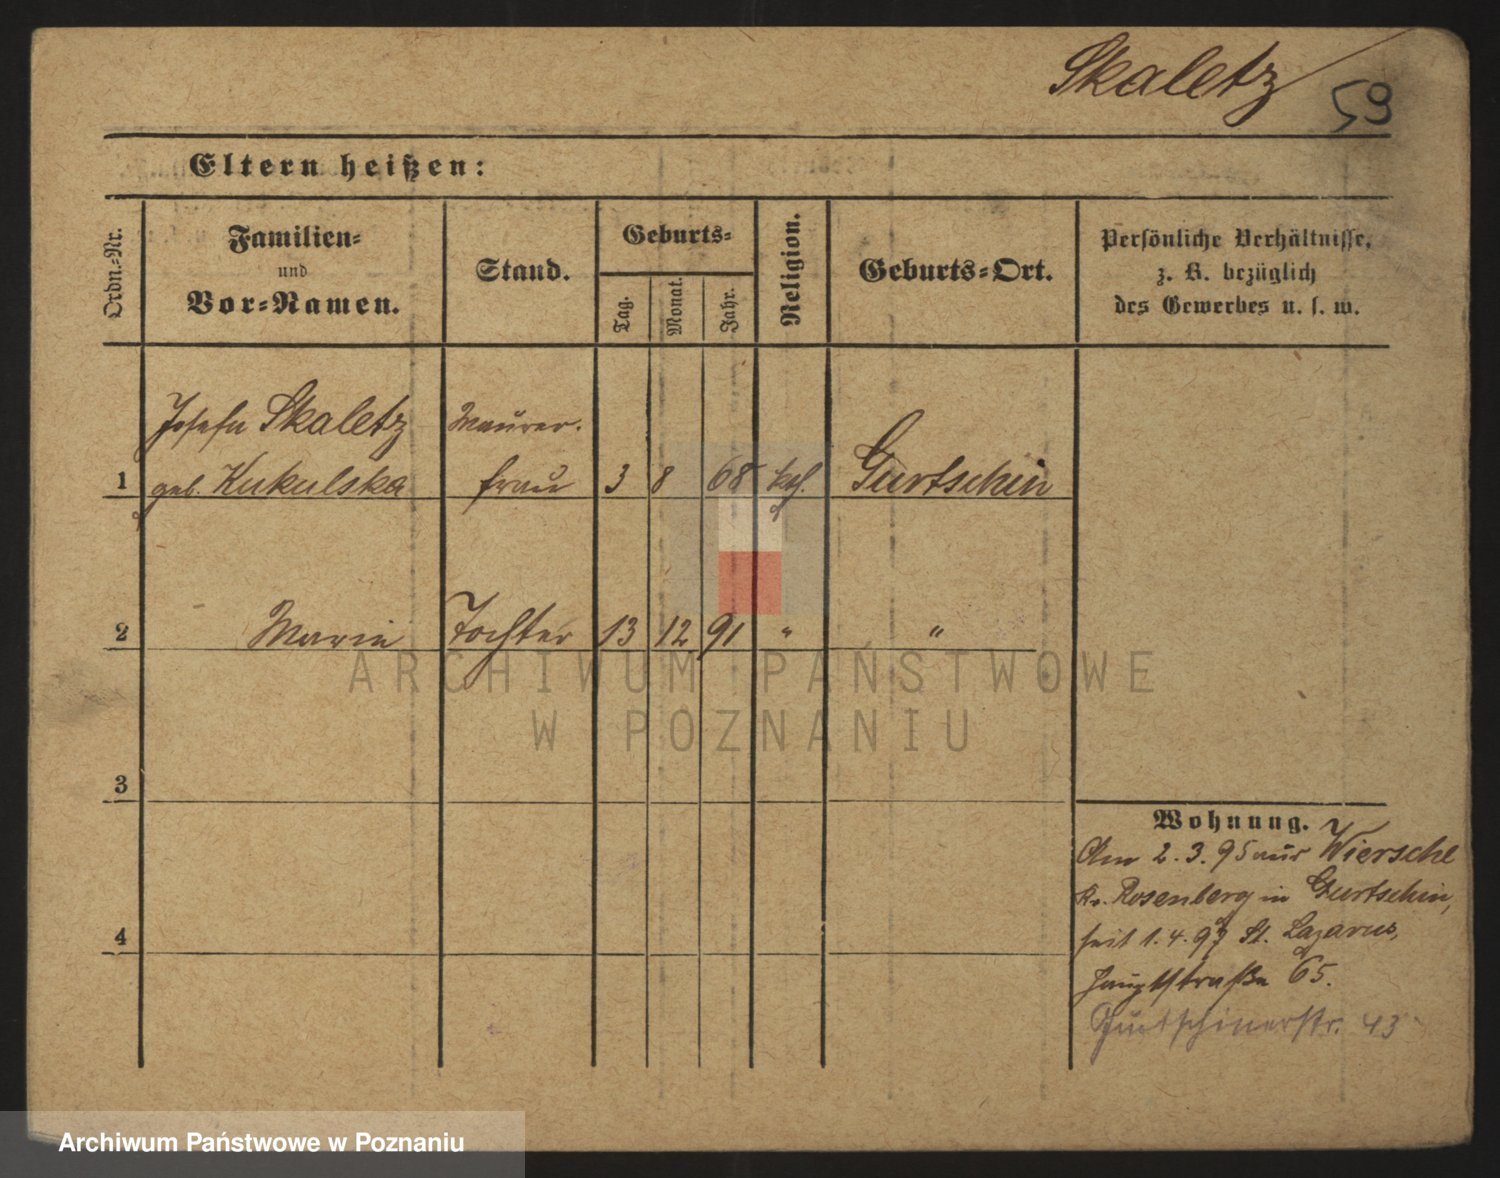 Skaletz
59
Eltern heißen:
Ordn.-Nr.
Familien-
und
Vor-Namen.
Stand.
Geburts-
Tag.
Monat.
Jahr.
Religion.
Geburts-Ort.
Persönliche Verhältnisse,
z. B. bezüglich
des Gewerbes u. s. w.
Josefa Skaletz Maurer-
1 geb. Kukulska frau 3 8 68 kath. Gurtschin
2 Marie Tochter 13 12 91 " "
3
4
Wohnung.
Am 2.3.95 aus Wiersche
Kr. Rosenberg in Gurtschin,
seit 1.4.97 St. Lazarus,
Hauptstraße 65.
Gurtschinerstr. 43
ARCHIWUM PAŃSTWOWE
W POZNANIU
Archiwum Państwowe w Poznaniu